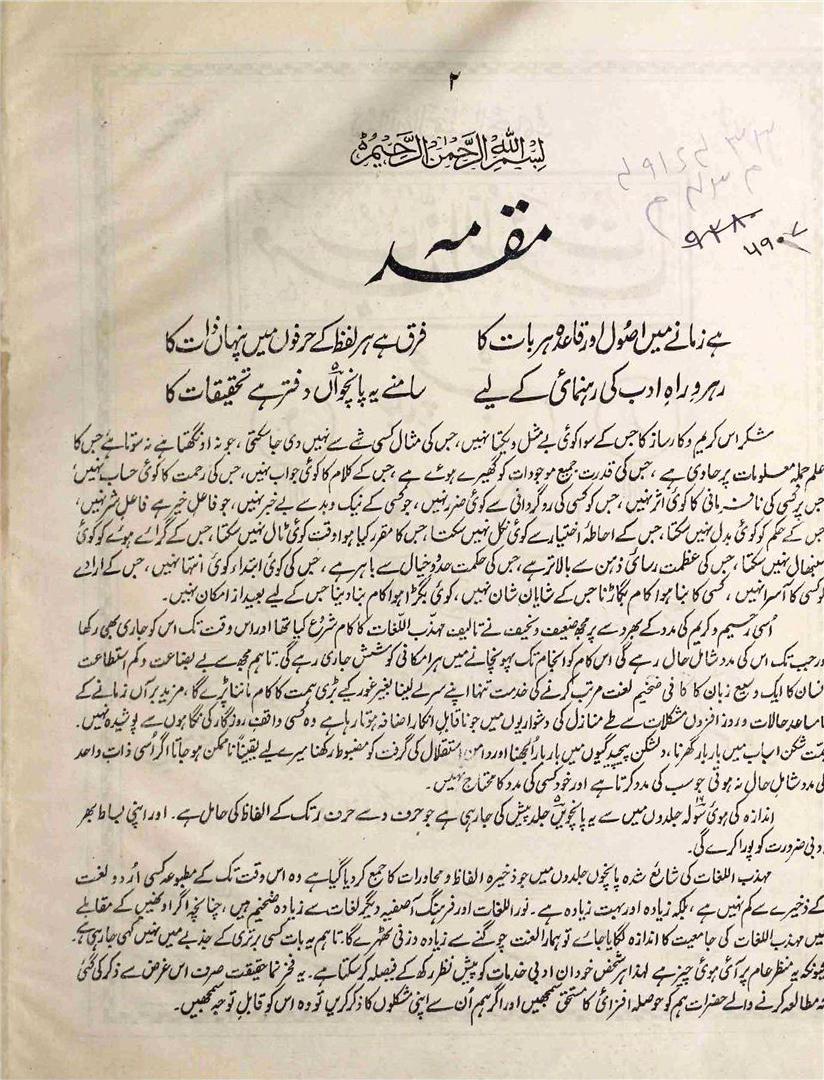 ۲
بِسْمِ اللهِ الرَّحْمٰنِ الرَّحِيْمِ
۵۹۰۷
مقدمہ
ہے زمانے میں اصُول اور قاعدہ ہر بات کا فرق ہے ہر لفظ کے حرفوں میں پنہاں ذات کا
رہروِ راہِ ادب کی رہنمائی کے لیے سامنے یہ پانچواںؔ دفتر ہے تحقیقات کا
شکر اس کریم و کارساز کا جس کے سوا کوئی بے مثل و یکتا نہیں، جس کی مثال کسی شے سے نہیں دی جاسکتی، جو نہ اونگھتا ہے نہ سوتا ہے جس کا
علم جملہ معلومات پر حاوی ہے، جس کی قدرت جمیع موجودات کو گھیرے ہوئے ہے، جس کے کلام کا کوئی جواب نہیں، جس کی رحمت کا کوئی حساب نہیں،
جس پر کسی کی نافرمانی کا کوئی اثر نہیں، جس کو کسی کی روگردانی سے کوئی ضرر نہیں، جو کسی کے نیک و بد سے بے خبر نہیں، جو فاعلِ خیر ہے فاعلِ شر نہیں،
جس کے حکم کو کوئی بدل نہیں سکتا، جس کے احاطۂ اختیار سے کوئی نکل نہیں سکتا، جس کا مقرر کیا ہوا وقت کوئی ٹال نہیں سکتا، جس کے گرائے ہوئے کو کوئی
سنبھال نہیں سکتا، جس کی عظمت رسائی ذہن سے بالاتر ہے، جس کی حکمت حدِ خیال سے باہر ہے، جس کی کوئی ابتداء کوئی انتہا نہیں، جس کے ارادے
کو کسی کا آسرا نہیں، کسی کا بنا ہوا کام بگاڑنا جس کے شایانِ شان نہیں، کوئی بگڑا ہوا کام بنا دینا جس کے لیے بعید از امکان نہیں۔
اُسی رحیم و کریم کی مدد کے بھروسے پر مجھ ضعیف و نحیف نے تالیف مہذب اللغات کا کام شروع کیا تھا اور اس وقت تک اس کو جاری بھی رکھا
اور جب تک اس کی مدد شاملِ حال رہے گی اس کام کو انجام تک پہونچانے میں ہر امکانی کوشش جاری رہے گی۔ تاہم مجھ سے بے بضاعت و کم استطاعت
انسان کا ایک وسیع زبان کا کافی ضخیم لغت مرتب کرنے کی خدمت تنہا اپنے سر لے لینا بغیر غور کیے بڑی ہمت کا کام ماننا پڑے گا، مزید برآں زمانے کے
نامساعد حالات و روز افزوں مشکلات سے طے منازل کی دشواریوں میں جو ناقابلِ انکار اضافہ ہوتا رہا ہے وہ کسی واقفِ روزگار کی نگاہوں سے پوشیدہ نہیں۔
ہمت شکن اسباب میں بار بار گھرنا، دلشکن پیچیدگیوں میں بار بار اُلجھنا اور دامنِ استقلال کی گرفت کو مضبوط رکھنا میرے لیے یقیناً ناممکن ہوجاتا اگر اُسی ذاتِ واحد
کی مدد شاملِ حال نہ ہوتی جو سب کی مدد کرتا ہے اور خود کسی کی مدد کا محتاج نہیں۔
اندازہ کی ہوئی سولہ جلدوں میں سے یہ پانچویں جلد پیش کی جارہی ہے جو حرف د سے حرف ز تک کے الفاظ کی حامل ہے۔ اور اپنی بساط بھر
ادبی ضرورت کو پورا کرے گی۔
مہذب اللغات کی شائع شدہ پانچوں جلدوں میں جو ذخیرہ الفاظ و محاورات کا جمع کردیا گیا ہے وہ اس وقت تک کے مطبوعہ کسی اُردو لغت
کے ذخیرے سے کم نہیں ہے، بلکہ زیادہ اور بہت زیادہ ہے۔ نور اللغات اور فرہنگِ آصفیہ دیگر لغات سے زیادہ ضخیم ہیں، چنانچہ اگر اونھیں کے مقابلے
میں مہذب اللغات کی جامعیت کا اندازہ لگایا جائے تو ہمارا لغت چوگنے سے زیادہ وزنی ٹھہرے گا تاہم یہ بات کسی برتری کے جذبے میں نہیں کہی جارہی ہے۔
کیونکہ یہ منظرِ عام پر آئی ہوئی چیز ہے لہذا ہر شخص خود ان ادبی خدمات کو پیشِ نظر رکھ کے فیصلہ کرسکتا ہے۔ یہ فخر نما حقیقت صرف اس غرض سے ذکر کی گئی
کہ مطالعہ کرنے والے حضرات ہم کو حوصلہ افزائی کا مستحق سمجھیں اور اگر ہم اُن سے اپنی مشکلوں کا ذکر کریں تو وہ اس کو قابلِ توجہ سمجھیں۔